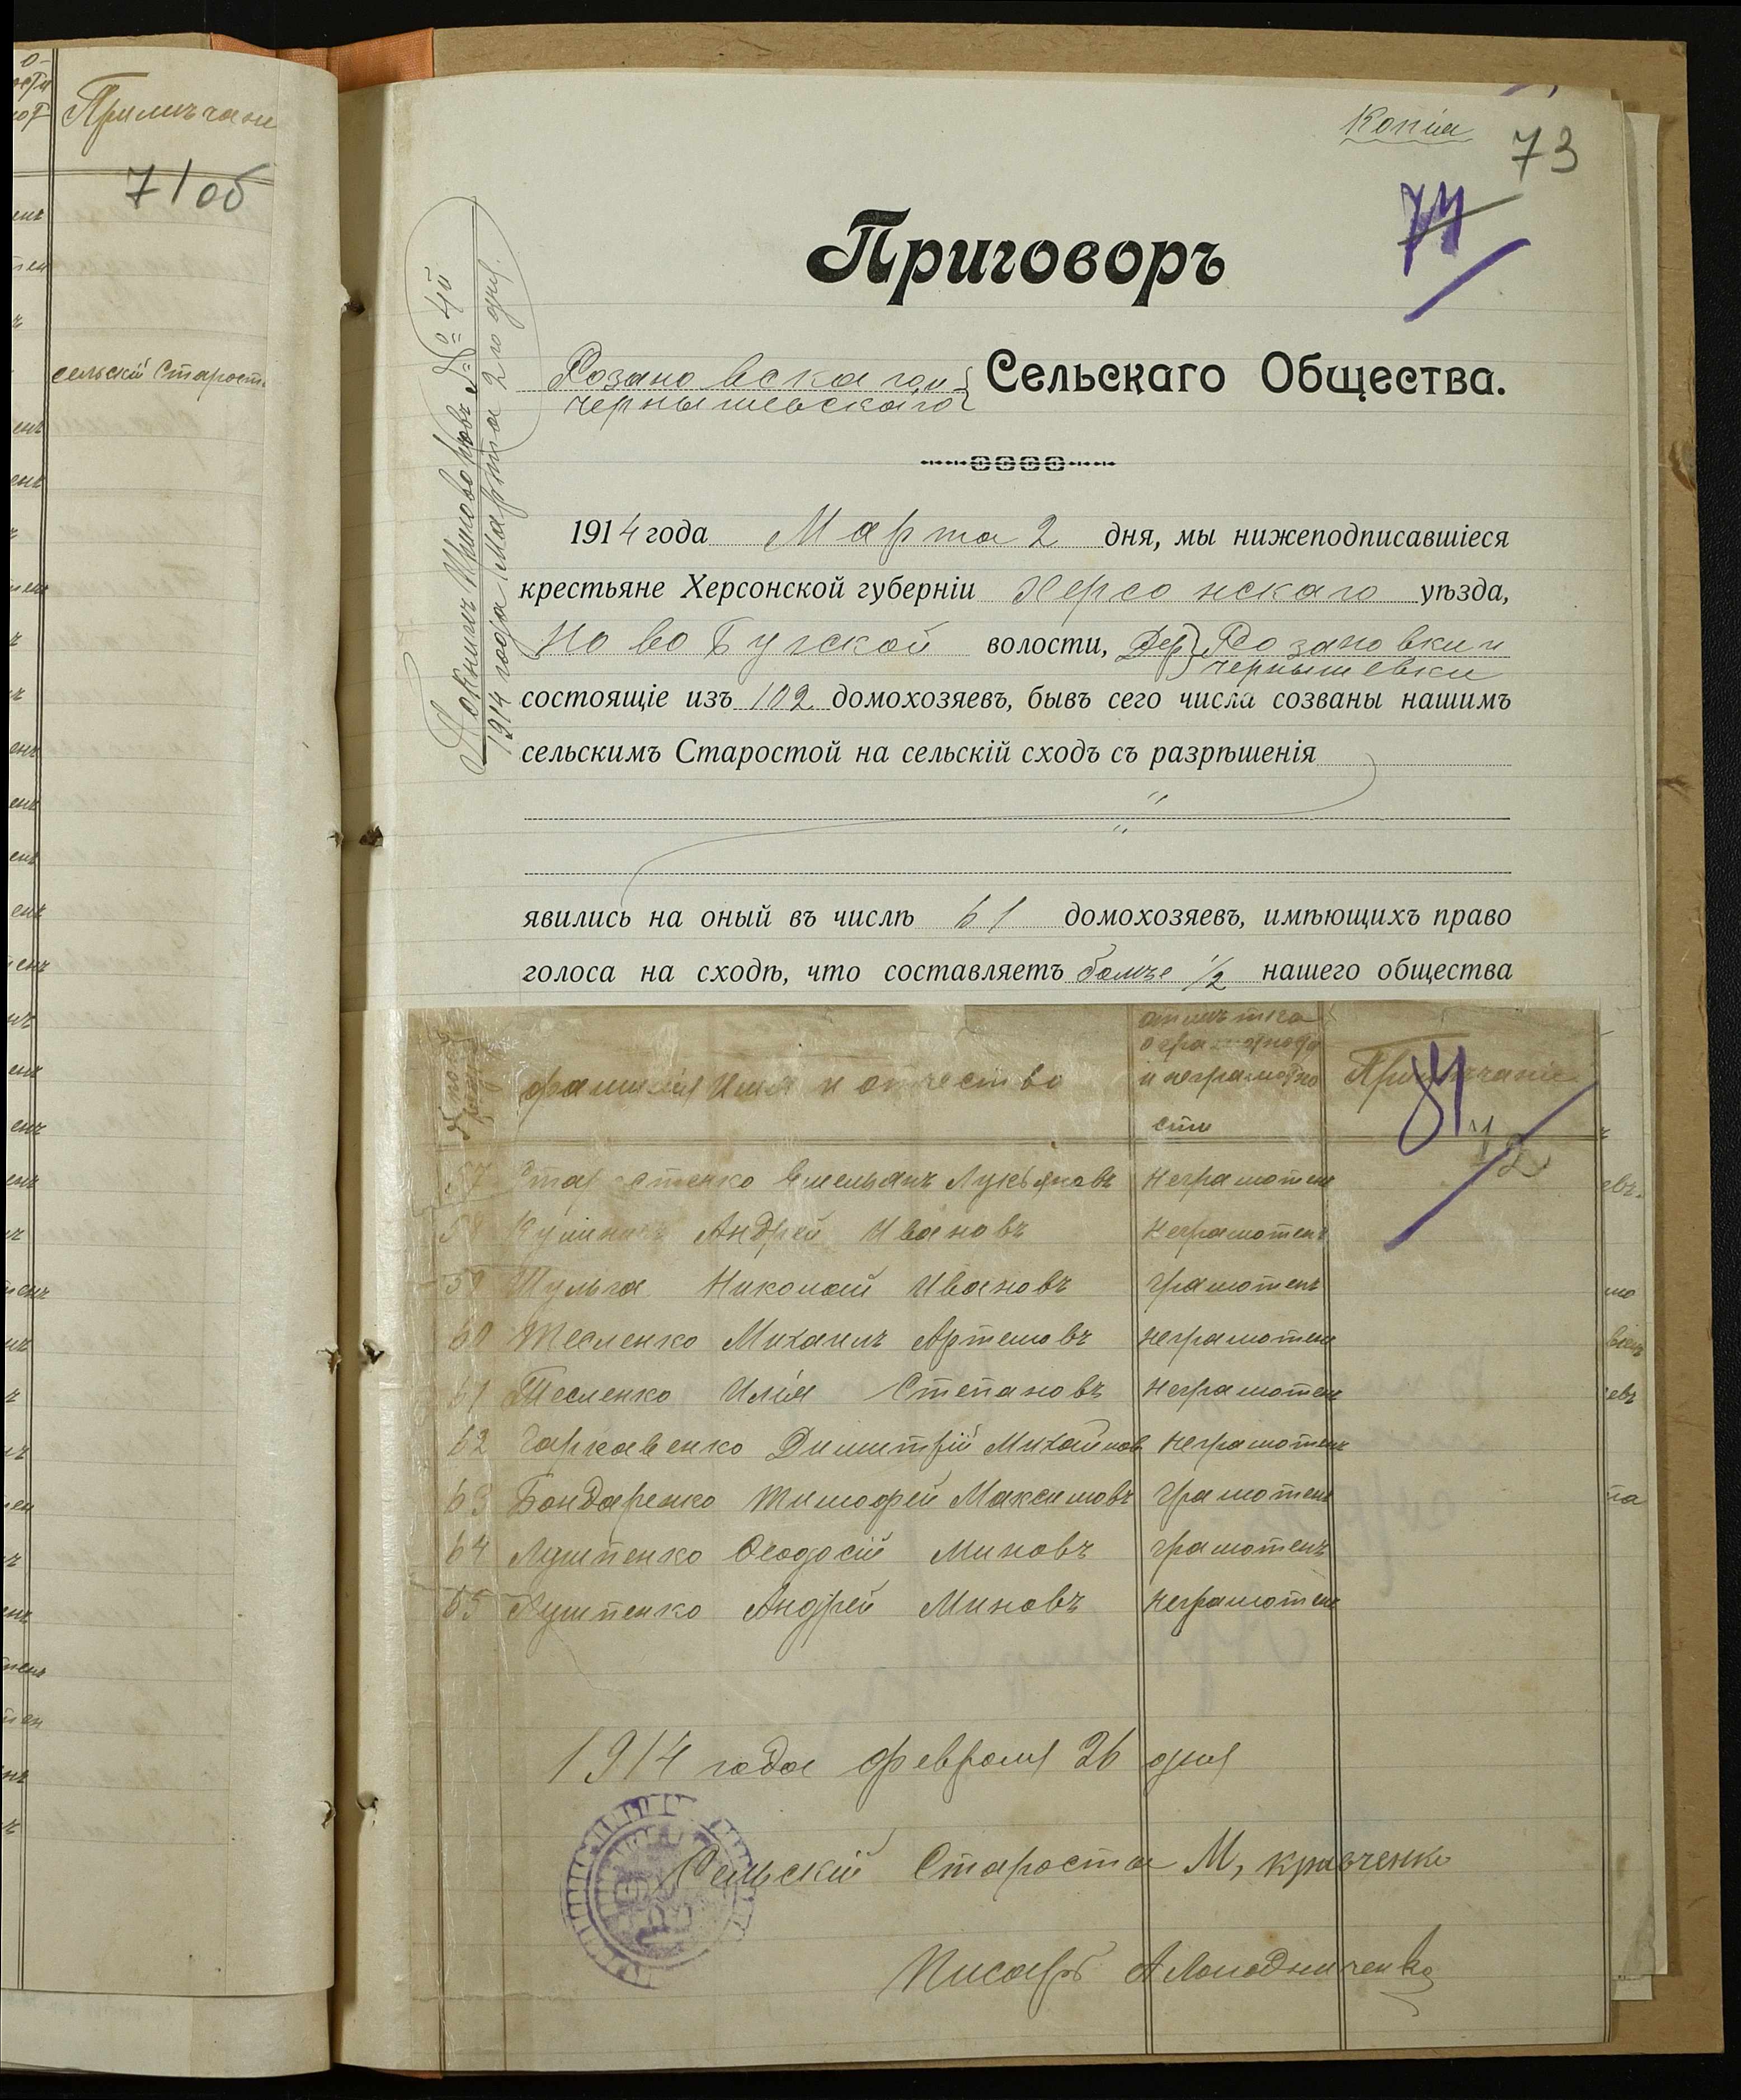 Примѣчані
71об
сельскій Старост
Копія
73
74
По книгѣ Приговоровъ № 4й
1914 года Марта 2го дня.
Приговоръ
Розановскаго и
Чернышевскаго
Сельскаго Общества.
1914 года Марта 2 дня, мы нижеподписавшіеся
крестьяне Херсонской губерніи Херсонскаго уѣзда,
Ново Бугской волости, Дер. Розановки и
Чернышевки
состоящіе изъ 102 домохозяевъ, бывъ сего числа созваны нашимъ
сельскимъ Старостой на сельскій сходъ съ разрѣшенія
"
"
явились на оный въ числѣ 61 домохозяевъ, имѣющихъ право
голоса на сходѣ, что составляетъ болѣе 1/2 нашего общества
фамилія Имя и отчество
отмѣтка
о грамотно
и неграмотно
сти
Примѣчаніе
57 Емельянъ Лукьяновъ Неграмотен
58 Андрей Ивановъ Неграмотенъ
59 Шульга Николай Ивановъ Грамотенъ
60 Тесленко Михаилъ Артемовъ Неграмотен
61 Тесленко Илія Степановъ Неграмотен
62 Гаркавенко Димитрій Михайлов Неграмотенъ
63 Бондаренко Тимофей Максимовъ Грамотенъ
64 Луштенко Ѳеодосій Миновъ Грамотенъ
65 Луштенко Андрей Миновъ Неграмотен
1914 года февраля 26 дня
Сельскій Староста М, кравченко
Писарь А Молодниченко